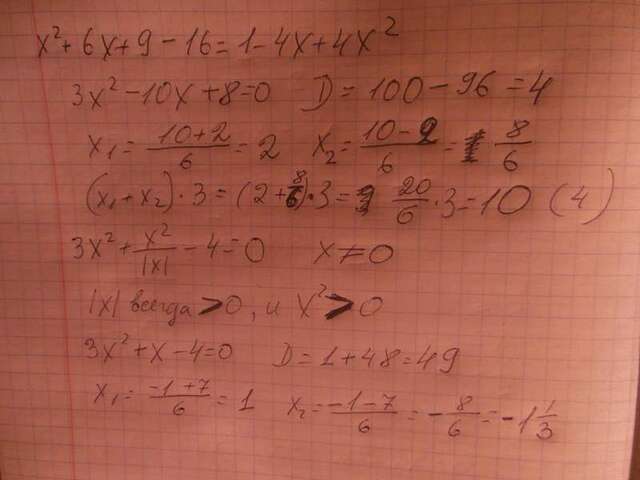 x² + 6x + 9 - 16 = 1 - 4x + 4x²
3x² - 10x + 8 = 0 D = 100 - 96 = 4
x₁ = (10+2)/6 = 2 x₂ = (10-2)/6 = 8/6
(x₁ + x₂) · 3 = (2 + 8/6) · 3 = 20/6 · 3 = 10 (4)
3x² + x²/|x| - 4 = 0 x ≠ 0
|x| всегда > 0, и x² > 0
3x² + x - 4 = 0 D = 1 + 48 = 49
x₁ = (-1+7)/6 = 1 x₂ = (-1-7)/6 = -8/6 = -1 1/3